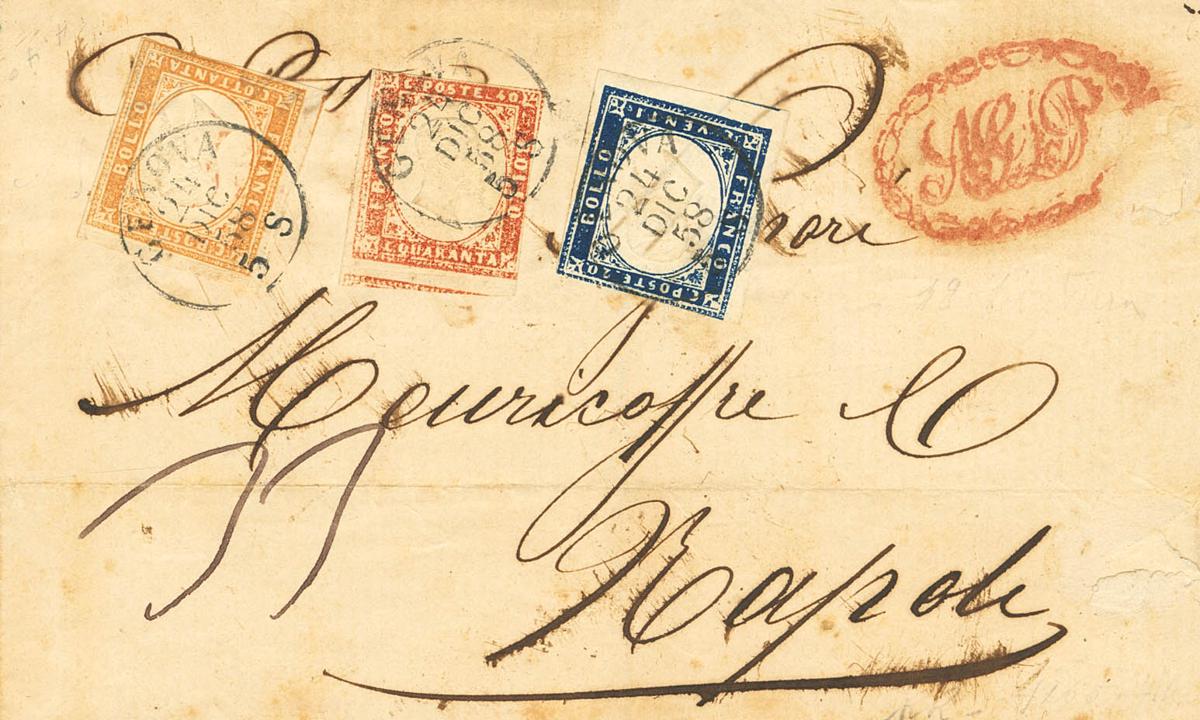 BOLLO C. OTTANTA FRANCO C. POSTE
C. POSTE. 40 BOLLO QUARANTA FRANCO
BOLLO C. VENTI FRANCO C. POSTE. 20
GENOVA 24 DIC 58 5 S
GENOVA 24 DIC 58 5 S
GENOVA 24 DIC 58
Meuricoffre & C
Napoli